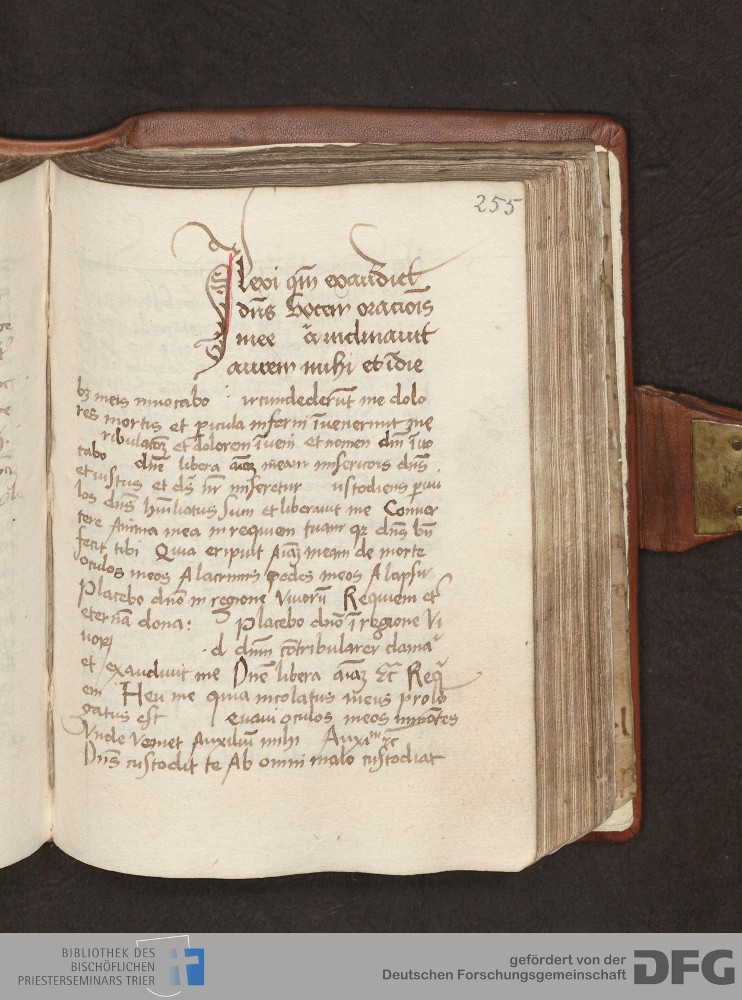 255
Dilexi qm̄ exaudiet
dn̄s vocem oracionis
mee Q̄a inclinauit
aurem mihi et ī die
bꝫ meis inuocabo : ircundederūt me dolo
res mortis et ꝑicula inferni īuenerunt me
tribulacōeꝫ et dolorem īueni et nomen dm̄ īuo
cabo dn̄e libera aīaꝫ meam misericors dn̄s
et iustus et ds̄ nr̄ miseretur ustodiens ꝑuu
los dn̄s hūiliatus sum et liberauit me Conuer
tere Anima mea in requiem tuam qꝫ dn̄s bn̄
fecit tibi Quia eripuit Aīaꝫ meam de morte
oculos meos A lacrimis pedes meos A lapsu
Placebo dn̄o in regione viuorū Requiem et̄
eternā dona: Placebo dn̄o ī regione vi
uoꝝ d dn̄m cōtribularer clama
et exaudiuit me Dn̄e libera aīaꝫ ⁊c̄ Req̄
em Heu me quia incolatus meus prolo
gatus est euaui oculos meos in mōtes
Vnde veniet Auxiliū mihi Auxiᵐ ⁊c̄
Dn̄s custodit te Ab omni malo custodiat
BIBLIOTHEK DES
BISCHÖFLICHEN
PRIESTERSEMINARS TRIER
gefördert von der
Deutschen Forschungsgemeinschaft
DFG